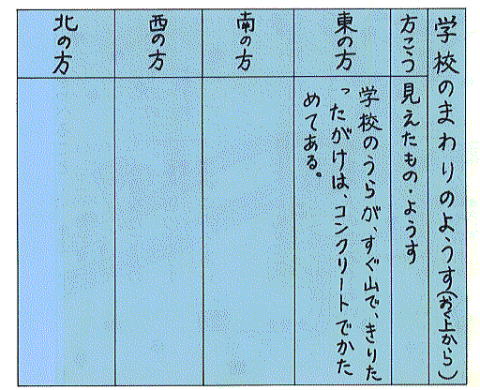 学校のまわりのようす(おく上から)
方こう
見えたもの・ようす
東の方
学校のうらが、すぐ山で、きりた
ったがけは、コンクリートでかた
めてある。
南の方
西の方
北の方